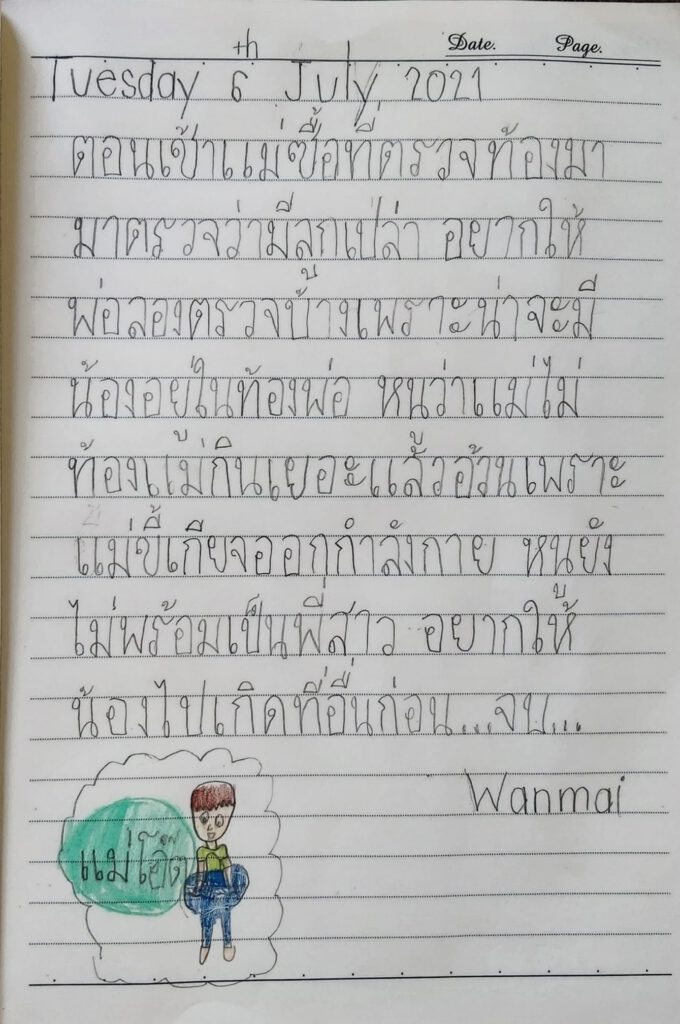 Date. Page.
Tuesday 6th July 2021
ตอนเช้าแม่ซื้อที่ตรวจท้องมา
มาตรวจว่ามีลูกเปล่า อยากให้
พ่อลองตรวจบ้างเพราะน่าจะมี
น้องอยู่ในท้องพ่อ หนูว่าแม่ไม่
ท้องแม่กินเยอะแล้วอ้วนเพราะ
แม่ขี้เกียจออกกำลังกาย หนูยัง
ไม่พร้อมเป็นพี่สาว อยากให้
น้องไปเกิดที่อื่นก่อน...จบ...
Wanmai
แม่โย๊ต